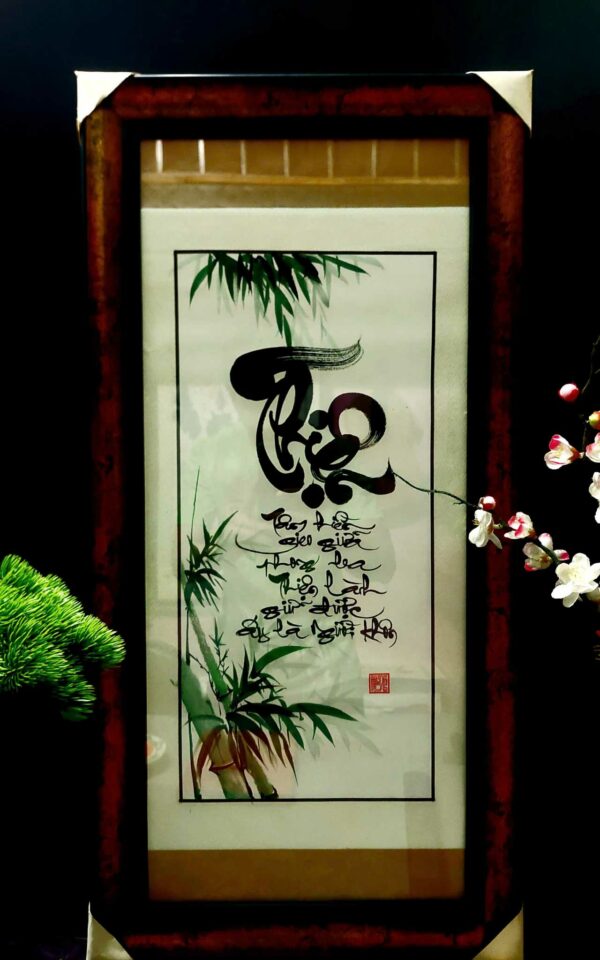 Thiện
Tâm hiền
gieo giữa
phong ba
Thiện lành
giữ được
ấy là người khôn